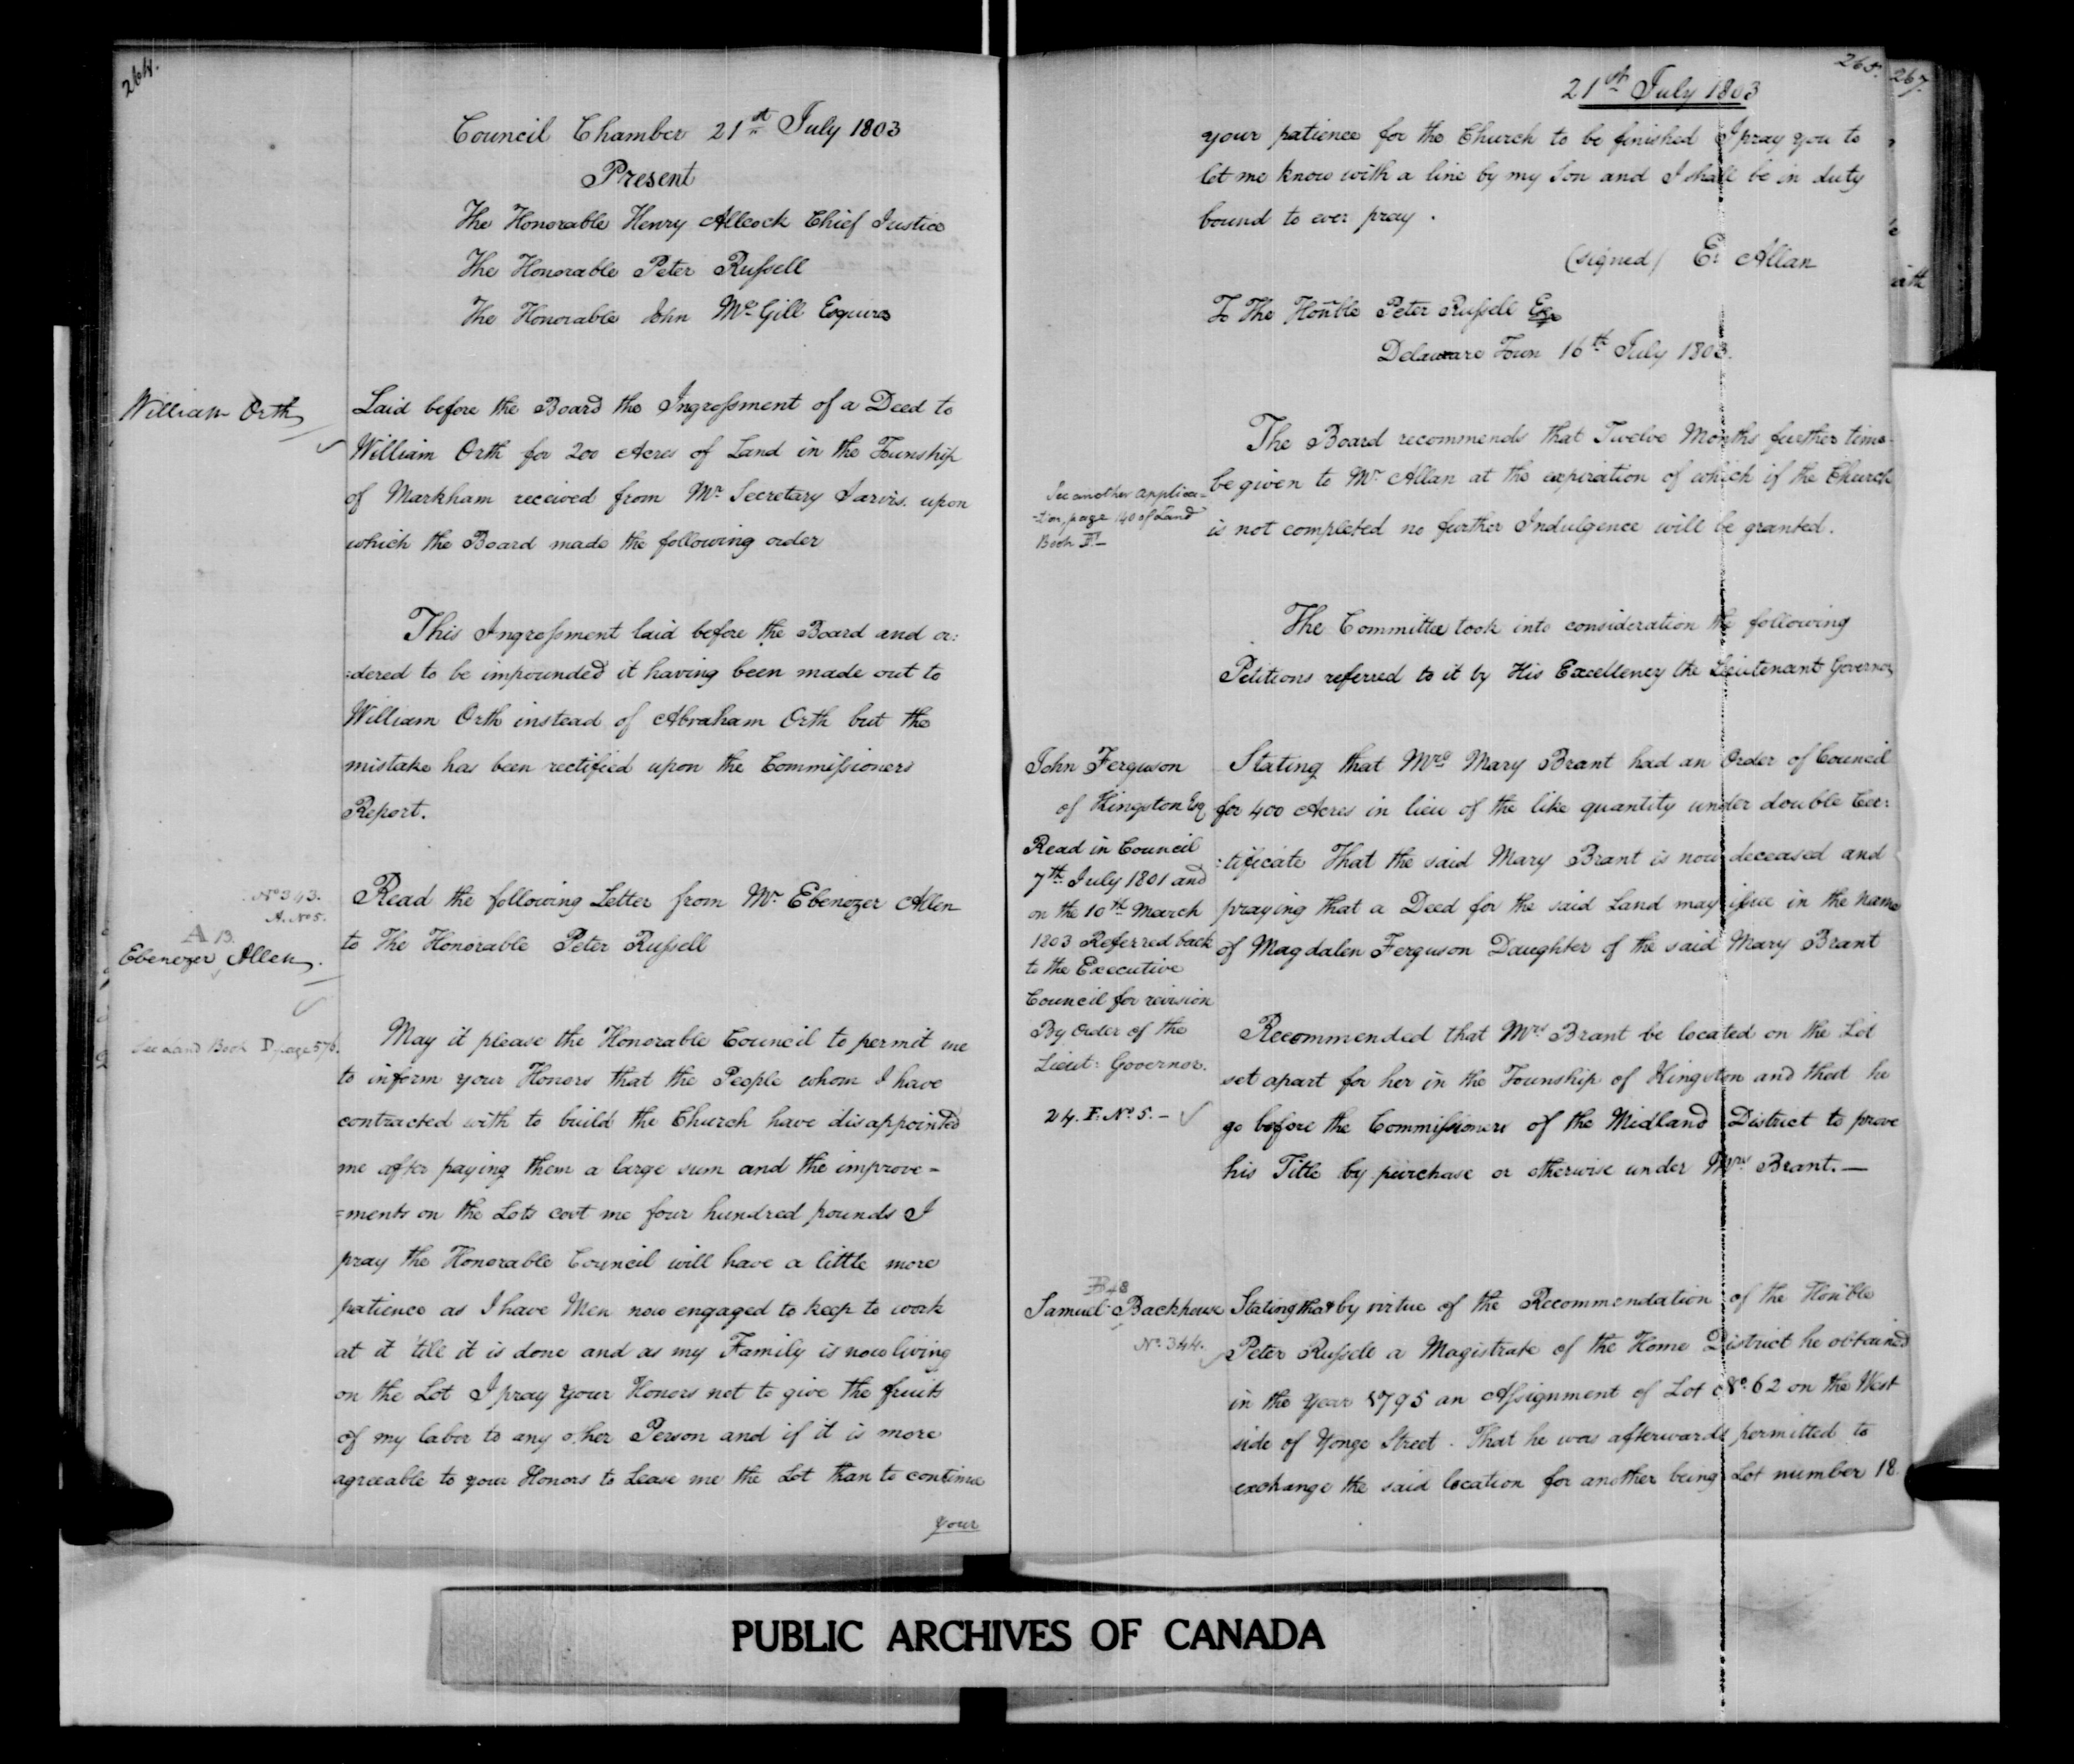 264.
Council Chamber 21st July 1803
Present
The Honorable Henry Allcock Chief Justice
The Honorable Peter Russell
The Honorable John McGill Esquires
William Orth
Laid before the Board the Ingrossment of a Deed to
William Orth for 200 Acres of Land in the Township
of Markham received from Mr Secretary Jarvis. upon
which the Board made the following order
This Ingrossment laid before the Board and or:
:dered to be impounded it having been made out to
William Orth instead of Abraham Orth but the
mistake has been rectified upon the Commissioners
Report.
No 343.
A. No 5.
A 13.
Ebenezer Allen.
Read the following Letter from Mr Ebenezer Allen
to The Honorable Peter Russell
See Land Book D page 576.
May it please the Honorable Council to permit me
to inform your Honors that the People whom I have
contracted with to build the Church have disappointed
me after paying them a large sum and the improve=
=ments on the Lots cost me four hundred pounds I
pray the Honorable Council will have a little more
patience as I have Men now engaged to keep to work
at it 'till it is done and as my Family is now living
on the Lot I pray your Honors not to give the fruits
of my labor to any other Person and if it is more
agreeable to your Honors to Lease me the Lot than to continue
your
265.
267.
21st July 1803
your patience for the Church to be finished I pray you to
let me know with a line by my Son and I shall be in duty
bound to ever pray.
(signed) E: Allan
To The Honble Peter Russell Esqr
Delaware Town 16th July 1803.
The Board recommends that Twelve Months further time
be given to Mr Allan at the expiration of which if the Church
is not completed no further Indulgence will be granted.
See another applica=
=tion, page 140 of Land
Book
The Committee took into consideration the following
Petitions referred to it by His Excellency the Lieutenant Governor
John Ferguson
of Kingston Esq
Read in Council
7th July 1801 and
on the 10th March
1803 Referred back
to the Executive
Council for revision
By Order of the
Lieut: Governor.
24. F. No 5. –
Stating that Mrs Mary Brant had an Order of Council
for 400 Acres in lieu of the like quantity under double Cer:
:tificate That the said Mary Brant is now deceased and
praying that a Deed for the said Land may issue in the name
of Magdalen Ferguson Daughter of the said Mary Brant
Recommended that Mrs Brant be located on the Lot
set apart for her in the Township of Kingston and that he
go before the Commissioners of the Midland District to prove
his Title by purchase or otherwise under Mrs Brant.—
B 48
Samuel Backhouse
No 344.
Stating that by virtue of the Recommendation of the Honble
Peter Russell a Magistrate of the Home District he obtained
in the Year 1795 an Assignment of Lot No. 62 on the West
side of Yonge Street. That he was afterwards permitted to
exchange the said location for another being Lot number 18.
PUBLIC ARCHIVES OF CANADA